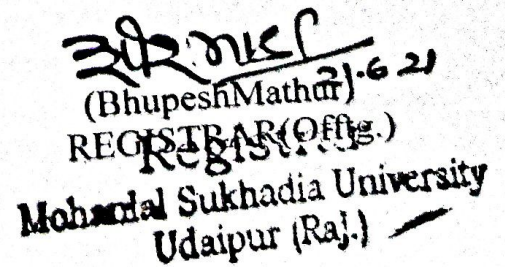 21.6 21
(BhupeshMathur)
REGISTRAR(Offtg.)
Registrar
Mohanlal Sukhadia University
Udaipur (Raj.)